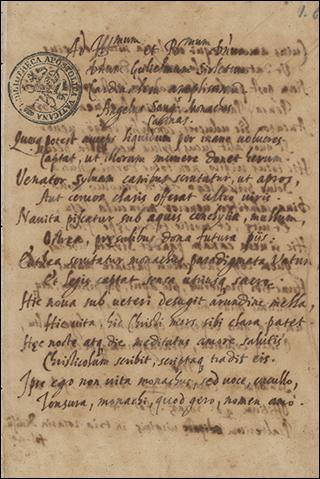 1.
BIBLIOTHECA APOSTOLICA VATICANA
Ad Ill^mum et R^mum Dnum
Cardinalem amplissimum
Angelus Sang. monachus
Casinas.
potest auceps liquidum per inane volucres
Captat, ut illorum munere donet herum.
Venator sylvam canibus scrutatur, ut apros,
Aut cervos claris offerat ultro viris.
Navita piscatur sub aquis conchylia, mullum,
Ostrea, praesulibus dona futura piis.
scrutatur monachus paradigmata Vatum
Et legis captat sensa sacrae.
Hic nova sub veteri detegit arundine messa,
Hic vita, hic Christi mors sibi clara patet.
Haec nocte atq die meditatus amore salutis
Christicolum scribit, scriptaq tradit eis.
Ipse ego non vita monachus, sed voce, cucullo,
Tonsura, monachi, quod gero, nomen amo.